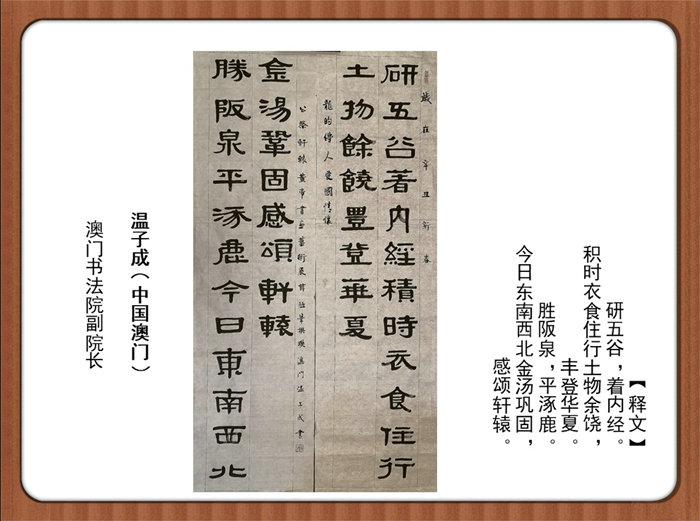 【释文】
研五谷，着内经。
积时衣食住行土物余饶，
丰登华夏。
胜阪泉，平涿鹿。
今日东南西北金汤巩固，
感颂轩辕。
歲在辛丑新春
研五谷著内經積時衣食住行
土物餘饒豊登華夏
龍的傳人愛國情懷
勝阪泉平涿鹿今日東南西北
金湯鞏固感頌軒轅
公祭軒轅黃帝書畫藝術展撰聯澳門温子成書
温子成（中国澳门）
澳门书法院副院长